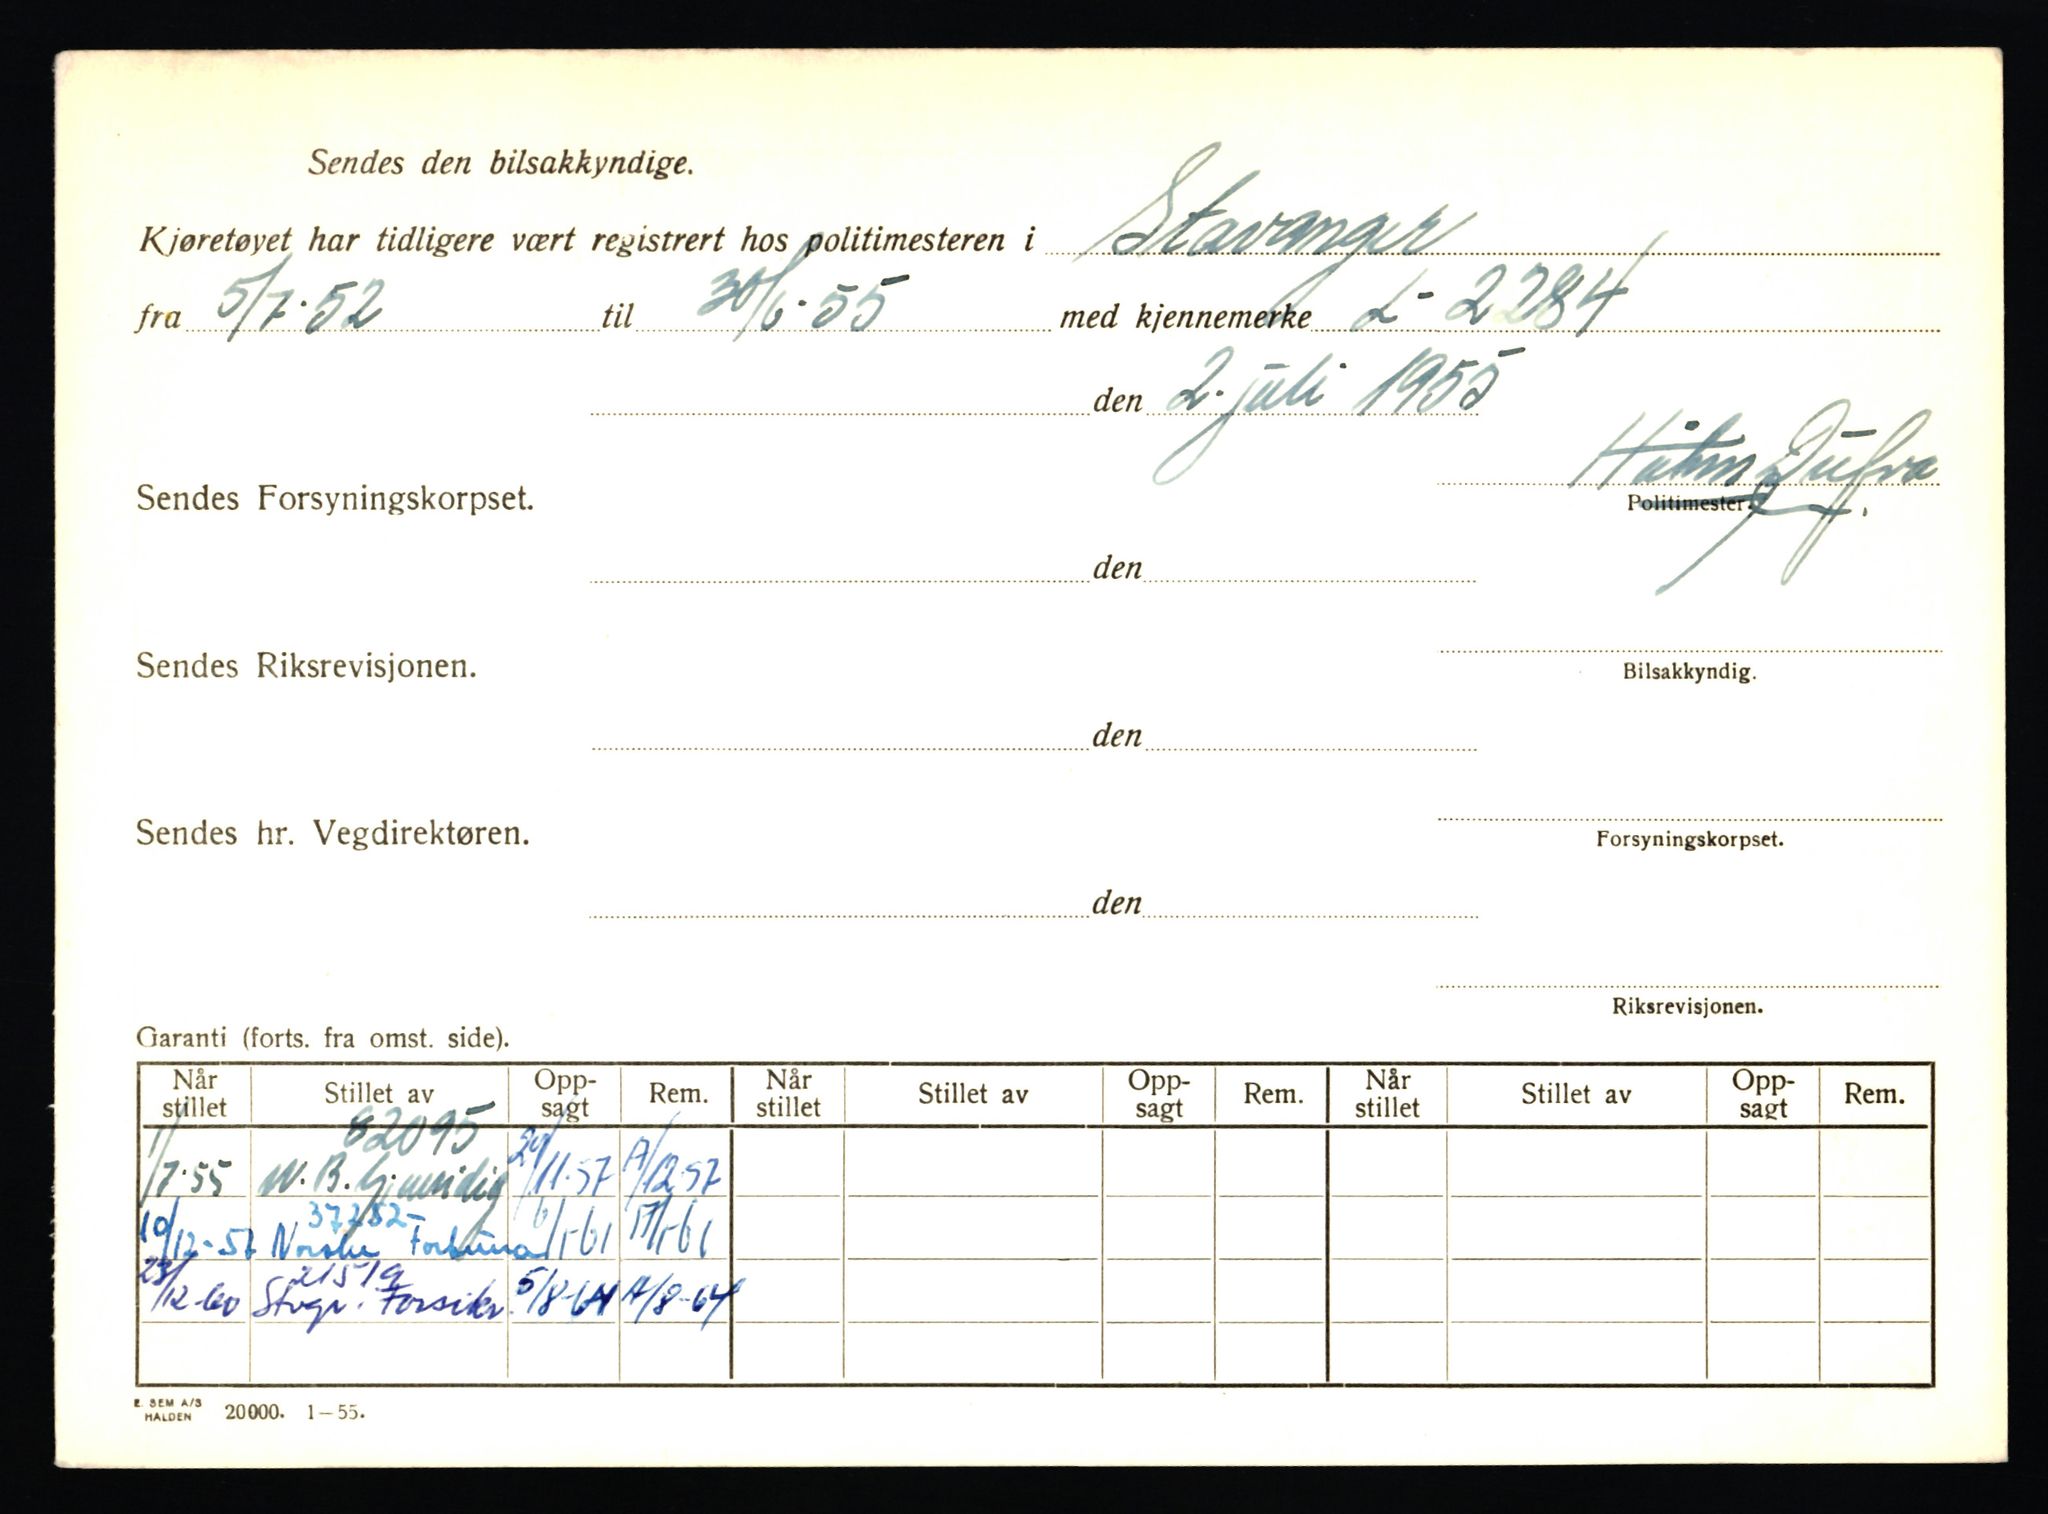 Sendes den bilsakkyndige.
Kjøretøyet har tidligere vært registrert hos politimesteren i Stavanger
fra 5/7-52 til 30/6-55 med kjennemerke L-2284
den 2. juli 1955
Sendes Forsyningskorpset.
Politimester.
den
Sendes Riksrevisjonen.
Bilsakkyndig.
den
Sendes hr. Vegdirektøren.
Forsyningskorpset.
den
Riksrevisjonen.
Garanti (forts. fra omst. side).
Når stillet Stillet av Opp-sagt Rem. Når stillet Stillet av Opp-sagt Rem. Når stillet Stillet av Opp-sagt Rem.
82095
1/7-55 N. B. Gjensidig 29/11-57 /12-57
37282
10/12-57 Norske Fortuna 6/1-61 17/1-61
21519
23/12-60 Stvgr. Forsikr. 5/8-64 14/8-64
E. SEM A/S HALDEN 20000. 1-55.